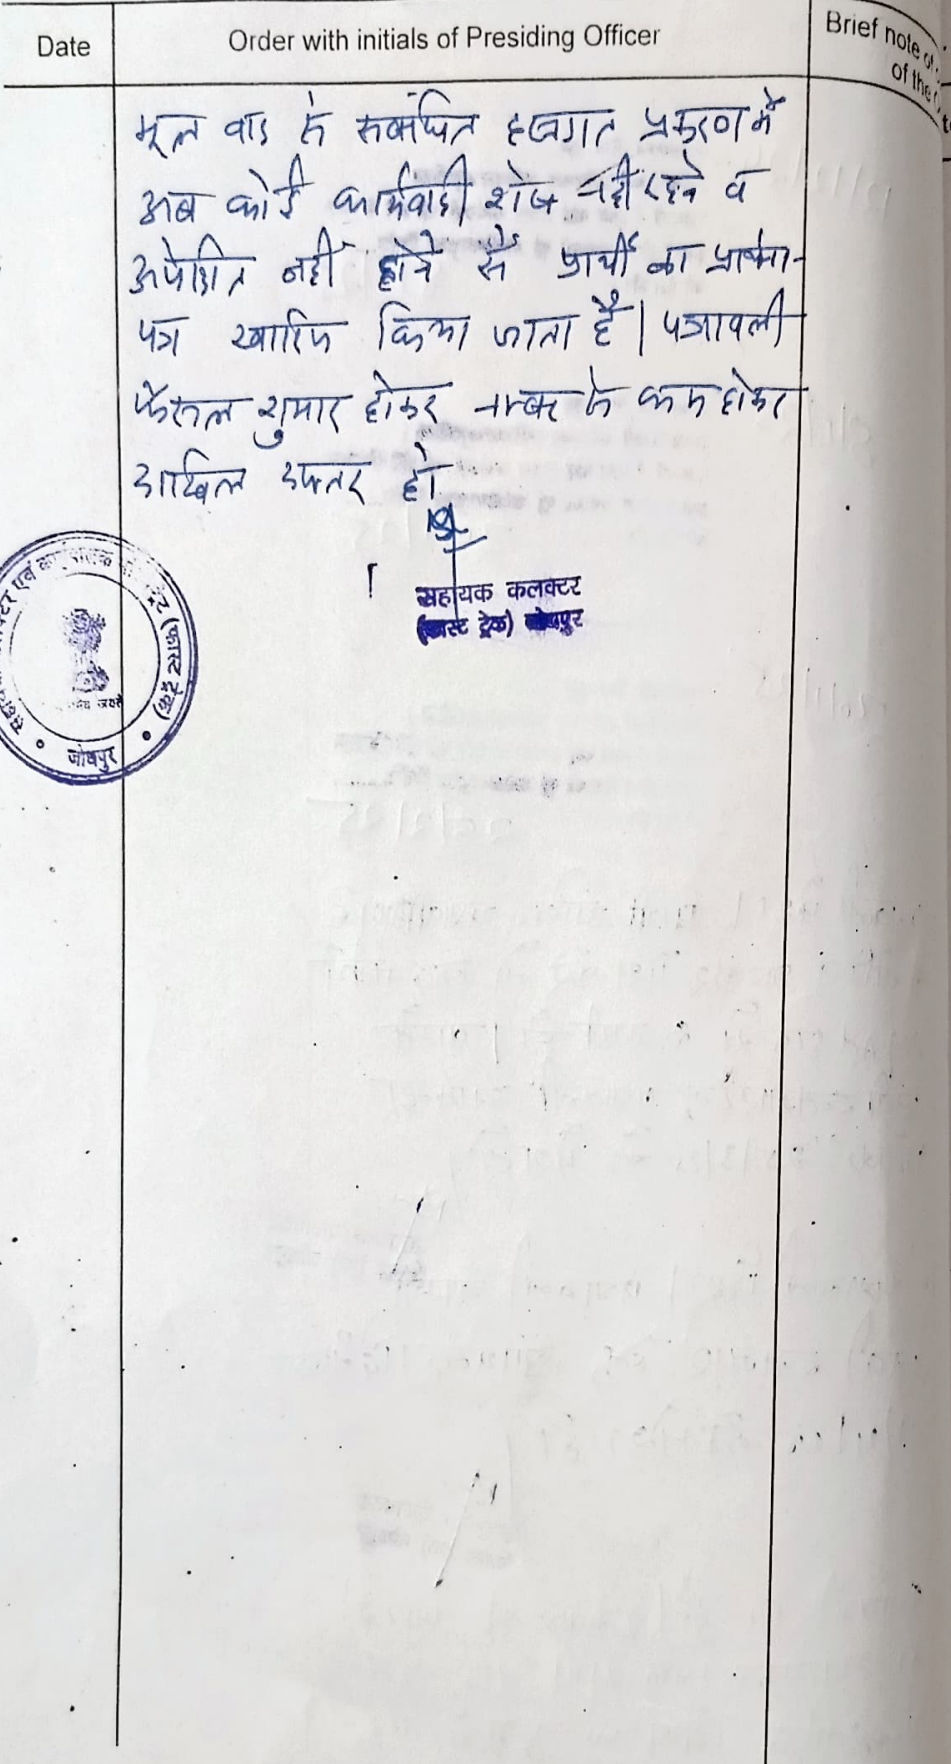 Date
Order with initials of Presiding Officer
Brief note of
of the
मूल वाद से सम्बंधित हस्तगत प्रकरण में
अब कोई कार्यवाही शेष नहीं रहने व
अपेक्षित नहीं होने से प्रार्थी का प्रार्थना-
पत्र खारिज किया जाता है। पत्रावली
फैसल शुमार होकर नम्बर से कम होकर
दाखिल दफ्तर हो
सहायक कलक्टर
(फास्ट ट्रेक) जोधपुर
एवं (फास्ट ट्रेक)
जोधपुर